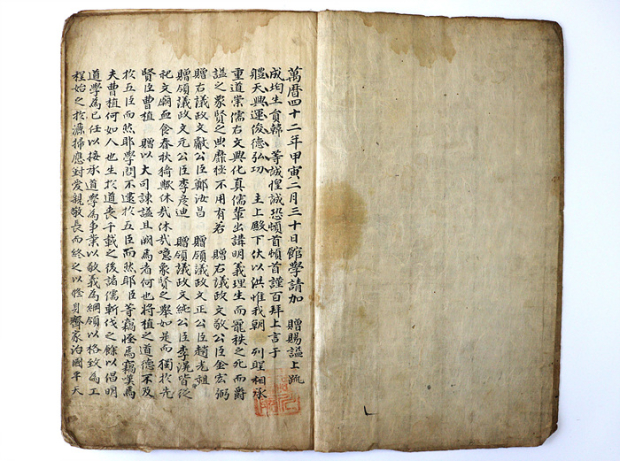 萬曆四十二年甲寅二月三十日館學請加 贈賜諡上疏
成均生員韓 等誠惶誠恐頓首頓首謹百拜上言于
體天興運俊德弘功 主上殿下伏以洪惟我朝 列聖相承
重道崇儒右文興化真儒輩出講明義理生而寵秩之死而爵
諡之象賢之典靡極不用有若 贈右議政文敬公臣金宏弼
贈右議政文獻公臣鄭汝昌 贈領議政文正公臣趙光祖
贈領議政文元公臣李彦迪 贈領議政文純公臣李滉皆從
祀文廟血食春秋猗歟休哉休哉噫象賢之舉如是而獨於先
賢臣曹植 贈以大司諫諡且闕焉者何也將植之道德不及
於五臣而然耶學問不逮於五臣而然耶臣等竊怪焉竊焉
夫曹植何如人也生於道喪千載之後諸儒斬伐之餘以倡明
道學爲己任以接承道學爲事業以敬義爲綱領以格致爲工
程始之於灑掃應對愛親敬長而終之以修身齊家治國平天